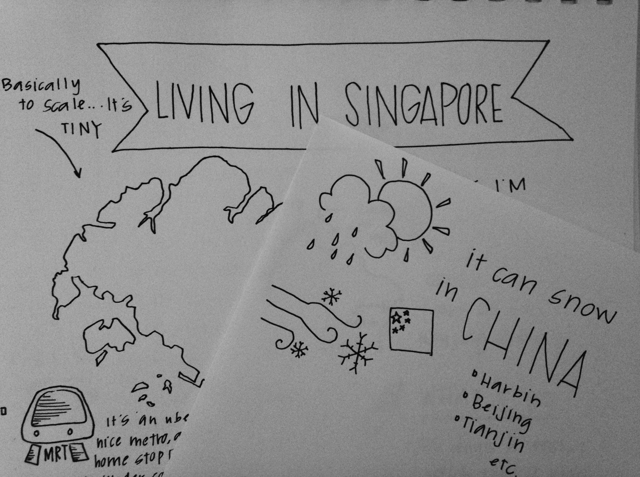 Basically
to scale... It's
TINY
LIVING IN SINGAPORE
I'M
it can snow
in CHINA
• Harbin
• Beijing
• Tianjin
etc.
It's an
nice metro,
home stop
MRT